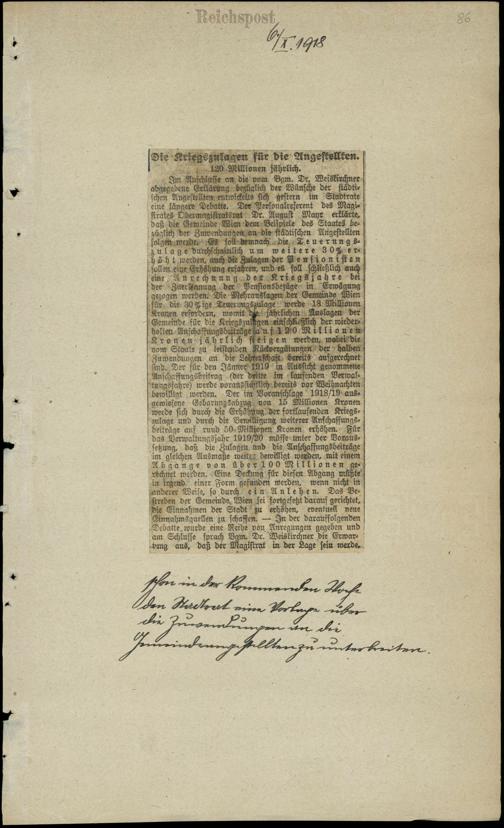 Reichspost
86
6/X. 1918
Die Kriegszulagen für die Angestellten.
120 Millionen jährlich.
Im Anschlusse an die vom Bgm. Dr. Weiskirchner
abgegebene Erklärung bezüglich der Wünsche der städti-
schen Angestellten entwickelte sich gestern im Stadtrate
eine längere Debatte. Der Personalreferent des Magi-
strates Obermagistratsrat Dr. August Mayr erklärte,
daß die Gemeinde Wien dem Beispiele des Staates be-
züglich der Zuwendungen an die städtischen Angestellten
folgen werde. Es soll demnach die Teuerungs-
zulage durchschnittlich um weitere 30% er-
höht werden, auch die Zulagen der Pensionisten
sollen eine Erhöhung erfahren, und es soll schließlich auch
eine Anrechnung der Kriegsjahre bei
der Zuerkennung der Pensionsbezüge in Erwägung
gezogen werden. Die Mehrauslagen der Gemeinde Wien
für die 30%ige Teuerungszulage werde 18 Millionen
Kronen erfordern, womit die jährlichen Auslagen der
Gemeinde für die Kriegszulagen einschließlich der wieder-
holten Anschaffungsbeiträge auf 120 Millionen
Kronen jährlich steigen werden, wobei die
vom Staate zu leistenden Rückvergütungen der halben
Zuwendungen an die Lehrerschaft bereits aufgerechnet
sind. Der für den Jänner 1919 in Aussicht genommene
Anschaffungsbeitrag (der dritte im laufenden Verwal-
tungsjahre) werde voraussichtlich bereits vor Weihnachten
bewilligt werden. Der im Voranschlage 1918/19 aus-
gewiesene Gebarungsabgang von 15 Millionen Kronen
werde sich durch die Erhöhung der fortlaufenden Kriegs-
zulage und durch die Bewilligung weiterer Anschaffungs-
beiträge auf rund 50 Millionen Kronen erhöhen. Für
das Verwaltungsjahr 1919/20 müsse unter der Voraus-
setzung, daß die Zulagen und die Anschaffungsbeiträge
im gleichen Ausmaße weiter bewilligt werden, mit einem
Abgange von über 100 Millionen ge-
rechnet werden. Eine Deckung für diesen Abgang müßte
in irgend einer Form gefunden werden, wenn nicht in
anderer Weise, so durch ein Anlehen. Das Be-
streben der Gemeinde Wien sei fortgesetzt darauf gerichtet,
die Einnahmen der Stadt zu erhöhen, eventuell neue
Einnahmsquellen zu schaffen. — In der darauffolgenden
Debatte wurde eine Reihe von Anregungen gegeben und
am Schlusse sprach Bgm. Dr. Weiskirchner die Erwar-
tung aus, daß der Magistrat in der Lage sein werde,
schon in der kommenden Woche
dem Stadtrat eine Vorlage über
die Zuwendungen an die
Gemeindeangestellten zu unterbreiten.